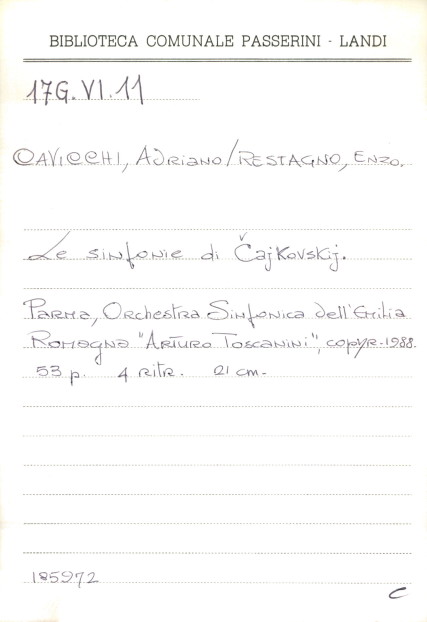 BIBLIOTECA COMUNALE PASSERINI - LANDI
17G.VI.11
CAVICCHI, Adriano/RESTAGNO, Enzo.
Le sinfonie di Čajkovskij.
Parma, Orchestra Sinfonica dell'Emilia
Romagna "Arturo Toscanini", copyr. 1988.
53 p. 4 ritr. 21 cm.
185972
C